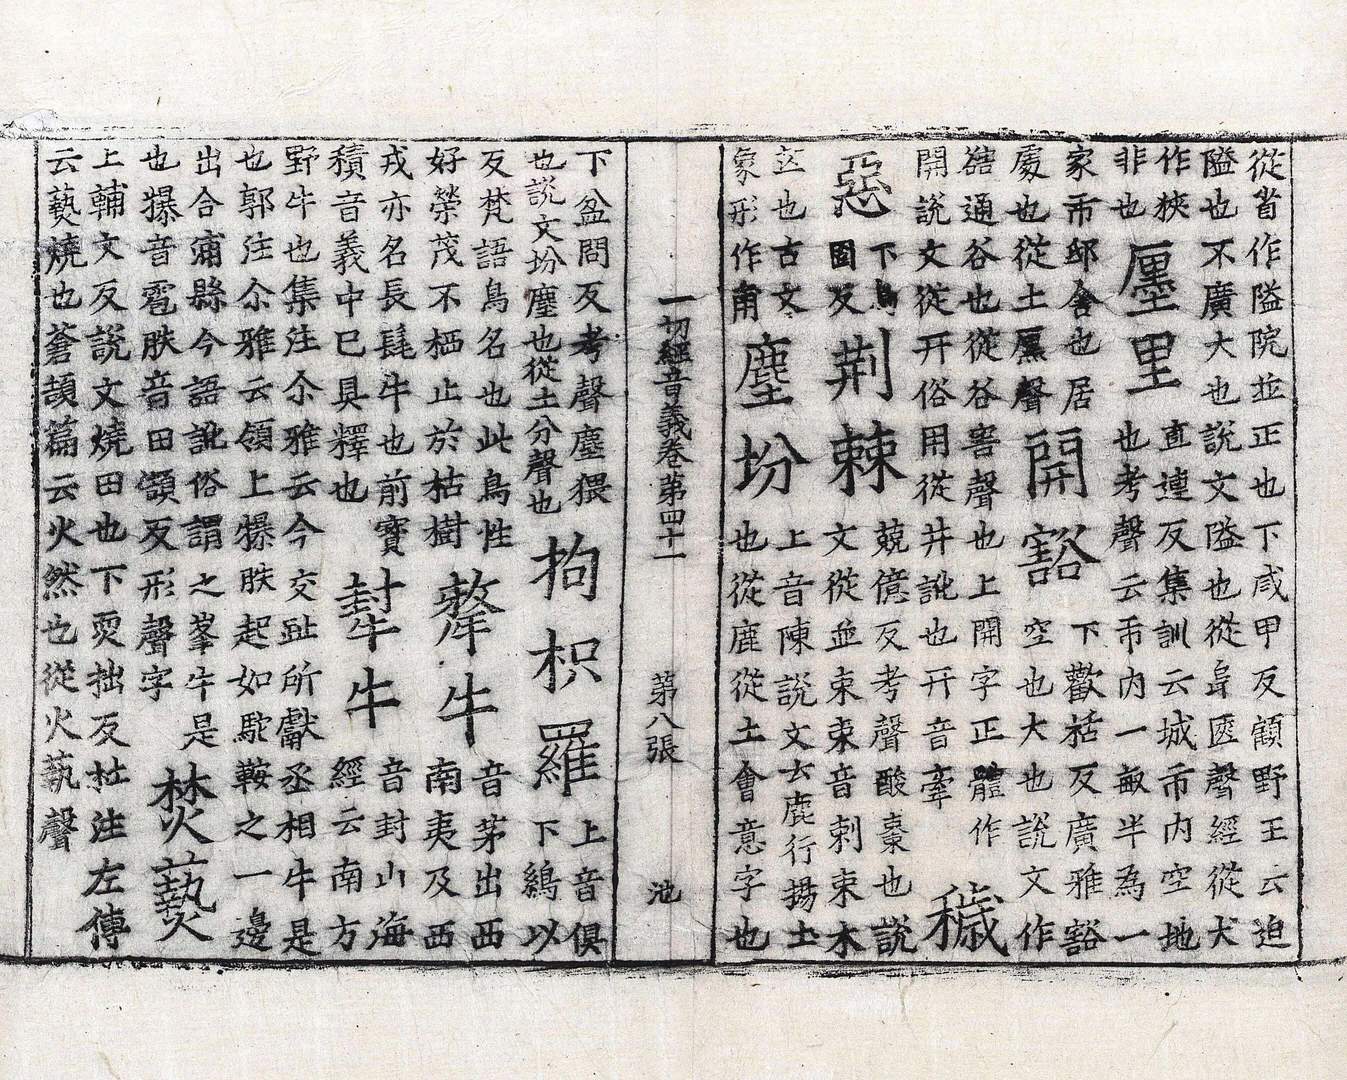 從省作隘院並正也下咸甲反顧野王云迫
隘也不廣大也說文隘也從𨸏匧聲經從犬
作狹
非也
廛里
直連反集訓云城市內空地
也考聲云市內一畝半為一
家市邸舍也居
處也從土㕓聲
開豁
下歡栝反廣雅豁
空也大也說文作
通谷也從谷害聲也上開字正體作
開說文從幵俗用從井訛也幵音牽
穢惡
下烏
固反
荊棘
兢億反考聲酸棗也說
文從並朿朿音刺朿木
也古文
象形作
塵坋
上音陳說文云鹿行揚土
也從鹿從土會意字也
一切經音義卷第四十一 第八張 池
下盆問反考聲塵猥
也說文坋塵也從土分聲也
拘枳羅
上音俱
下鷄以
反梵語鳥名也此鳥性
好榮茂不栖止於枯樹
犛牛
音茅出西
南夷及西
戎亦名長髦牛也前寶
積音義中已具釋也
犎牛
音封山海
經云南方
野牛也集注尒雅云今交趾所獻丞相牛是
也郭注尒雅云領上犦胅起如駝鞍之一邊
出合浦縣今語訛俗謂之峯牛是
也犦音雹胅音田頡反形聲字
焚爇
上輔文反說文燒田也下耎拙反杜注左傳
云爇燒也蒼頡篇云火然也從火蓺聲